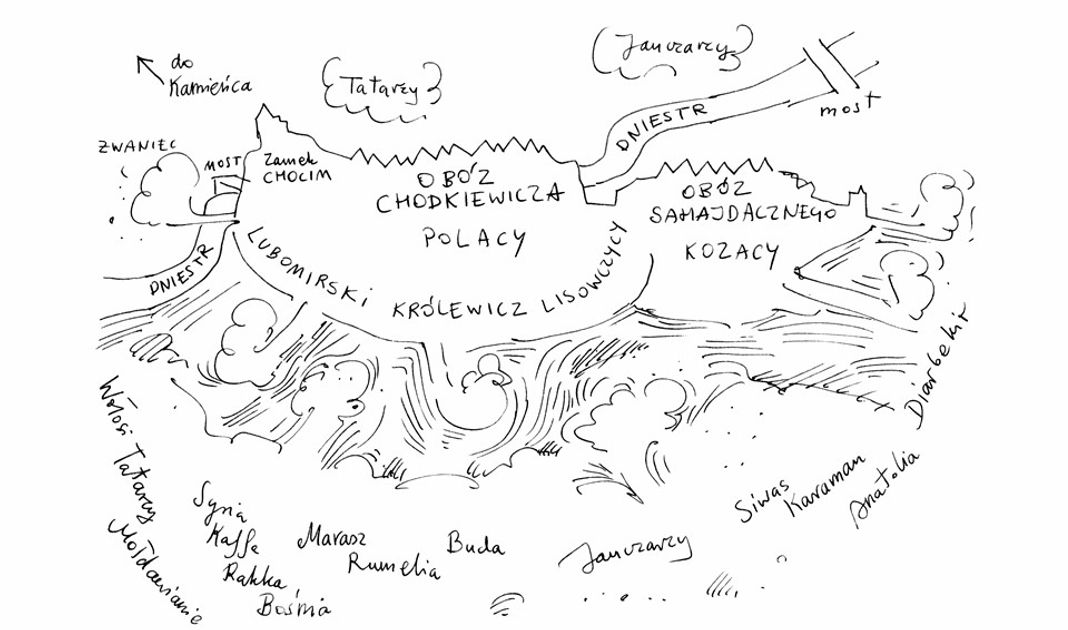 do
Kamieńca
Tatarzy
Janczarzy
most
DNIESTR
ZWANIEC
MOST
Zamek
CHOCIM
OBÓZ
CHODKIEWICZA
POLACY
OBÓZ
SAHAJDACZNEGO
KOZACY
DNIESTR
LUBOMIRSKI
KRÓLEWICZ
LISOWCZYCY
Wołosi Tatarzy
Mołdawianie
Syria
Kaffa
Rakka
Bośnia
Marasz
Rumelia
Buda
Janczarzy
Siwas
Karaman
Anatolia
Diarbekir